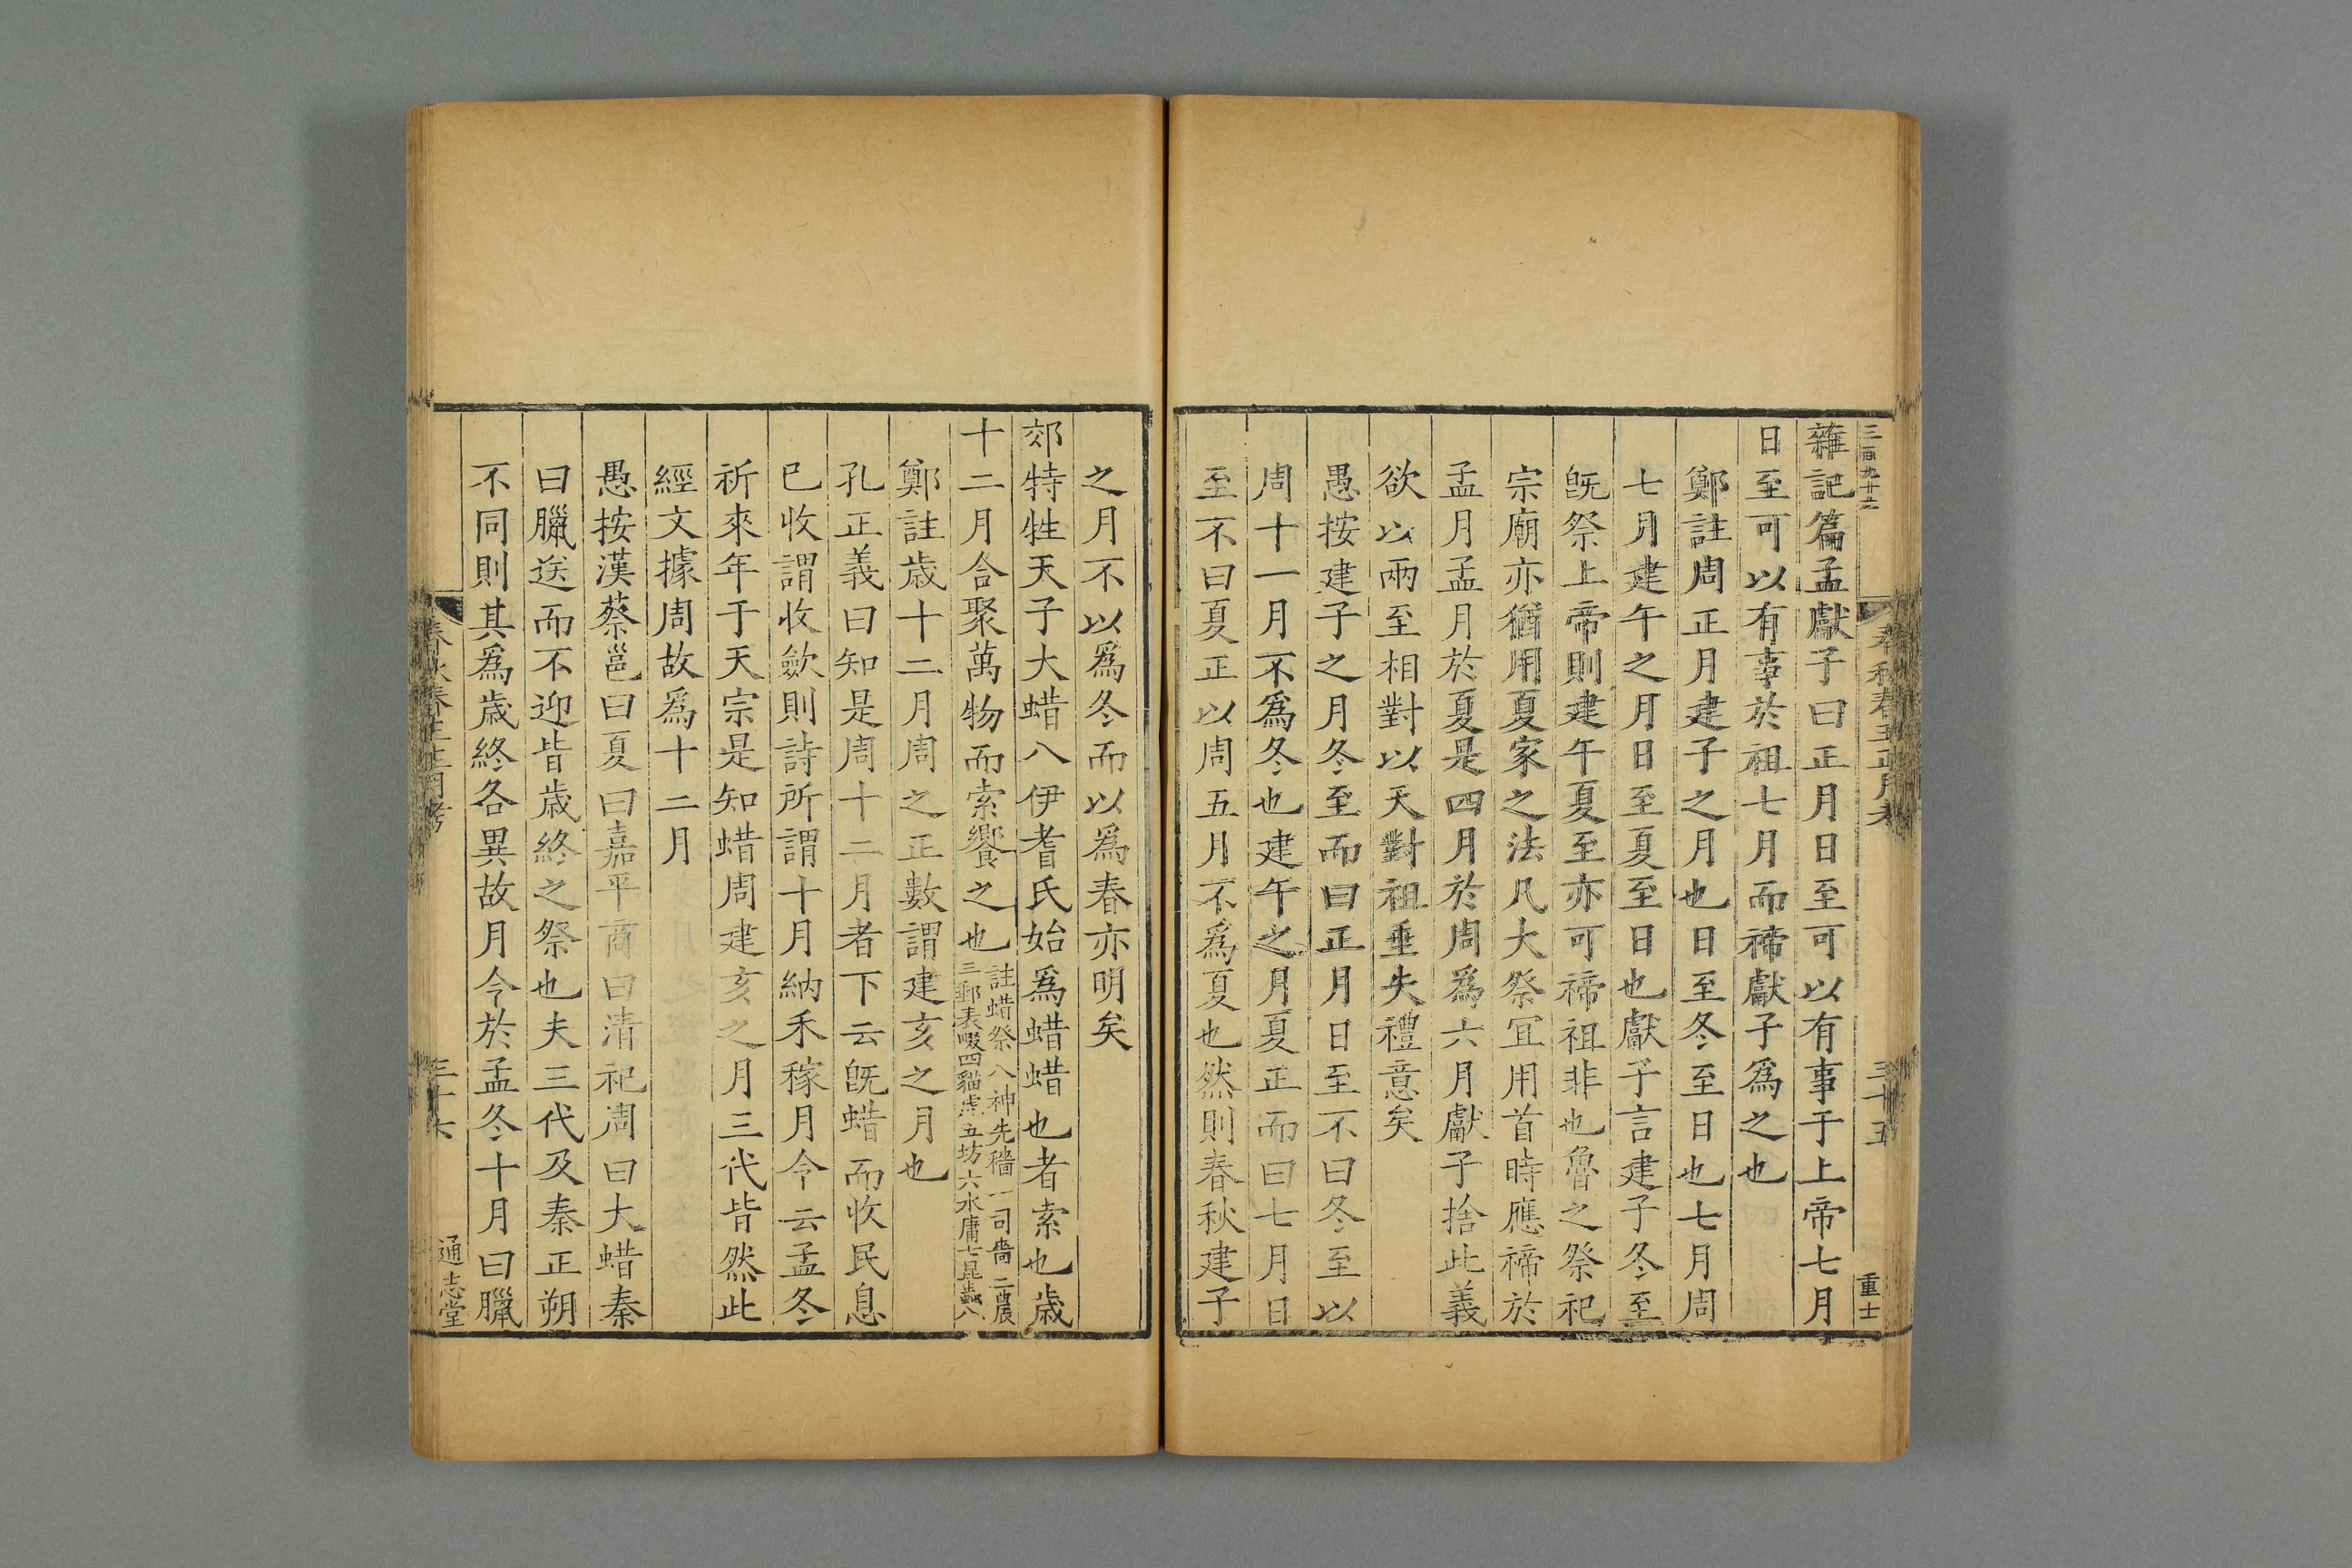 雜記篇孟獻子曰正月日至可以有事于上帝七月
日至可以有事於祖七月而禘獻子爲之也
鄭註周正月建子之月也日至冬至日也七月周
七月建午之月日至夏至日也獻子言建子冬至
旣祭上帝則建午夏至亦可禘祖非也魯之祭祀
宗廟亦猶用夏家之法凡大祭宜用首時應禘於
孟月孟月於夏是四月於周爲六月獻子捨此義
欲以兩至相對以天對祖乖失禮意矣
愚按建子之月冬至而曰正月日至不曰冬至以
周十一月不爲冬也建午之月夏正而曰七月日
至不曰夏正以周五月不爲夏也然則春秋建子
之月不以爲冬而以爲春亦明矣
郊特牲天子大蜡八伊耆氏始爲蜡蜡也者索也歲
十二月合聚萬物而索饗之也註蜡祭八神先穡一司嗇二農
三郵表畷四貓虎五坊六水庸七昆蟲八
鄭註歲十二月周之正數謂建亥之月也
孔正義曰知是周十二月者下云旣蜡而收民息
已收謂收斂則詩所謂十月納禾稼月令云孟冬
祈來年于天宗是知蜡周建亥之月三代皆然此
經文據周故爲十二月
愚按漢蔡邕曰夏曰嘉平商曰清祀周曰大蜡秦
曰臘送而不迎皆歲終之祭也夫三代及秦正朔
不同則其爲歲終各異故月令於孟冬十月曰臘
春秋春王正月考
三十五
重士
春秋春王正月考
三十六
通志堂